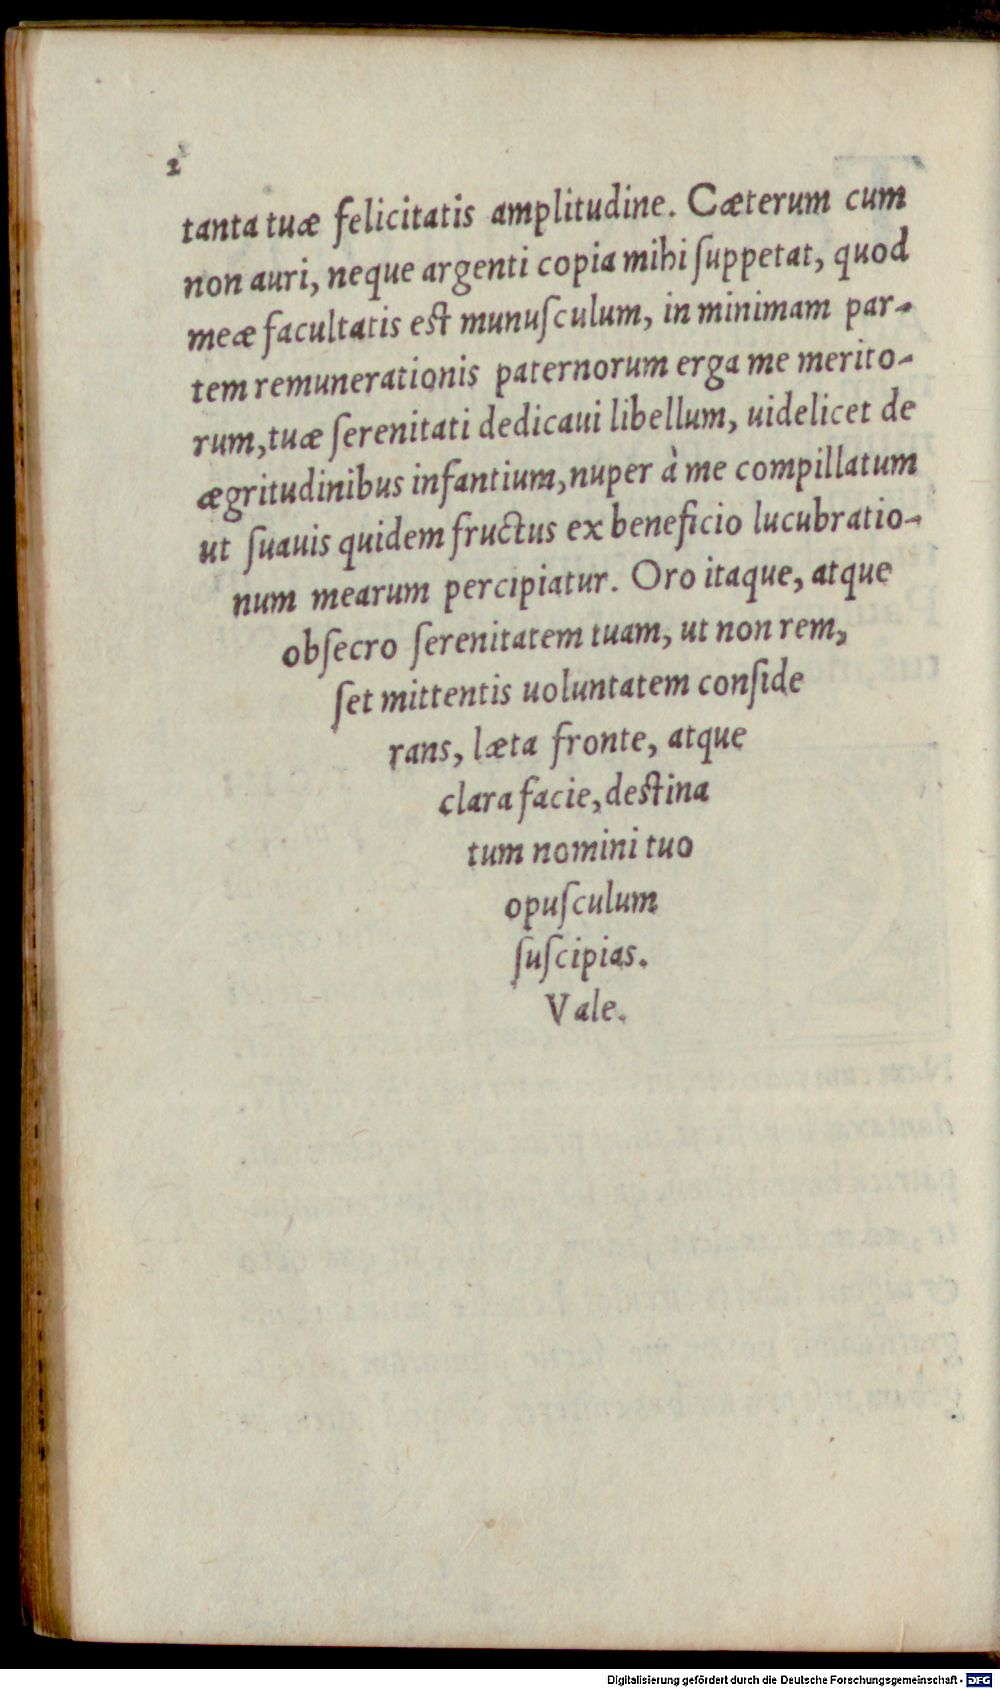 2
tanta tuæ felicitatis amplitudine. Cæterum cum
non auri, neque argenti copia mihi ſuppetat, quod
meæ facultatis eſt munuſculum, in minimam par-
tem remunerationis paternorum erga me merito-
rum, tuæ ſerenitati dedicaui libellum, uidelicet de
ægritudinibus infantium, nuper à me compillatum
ut ſuauis quidem fructus ex beneficio lucubratio-
num mearum percipiatur. Oro itaque, atque
obſecro ſerenitatem tuam, ut non rem,
ſet mittentis uoluntatem conſide
rans, læta fronte, atque
clara facie, deſtina
tum nomini tuo
opuſculum
ſuſcipias.
Vale.
Digitalisierung gefördert durch die Deutsche Forschungsgemeinschaft - DFG